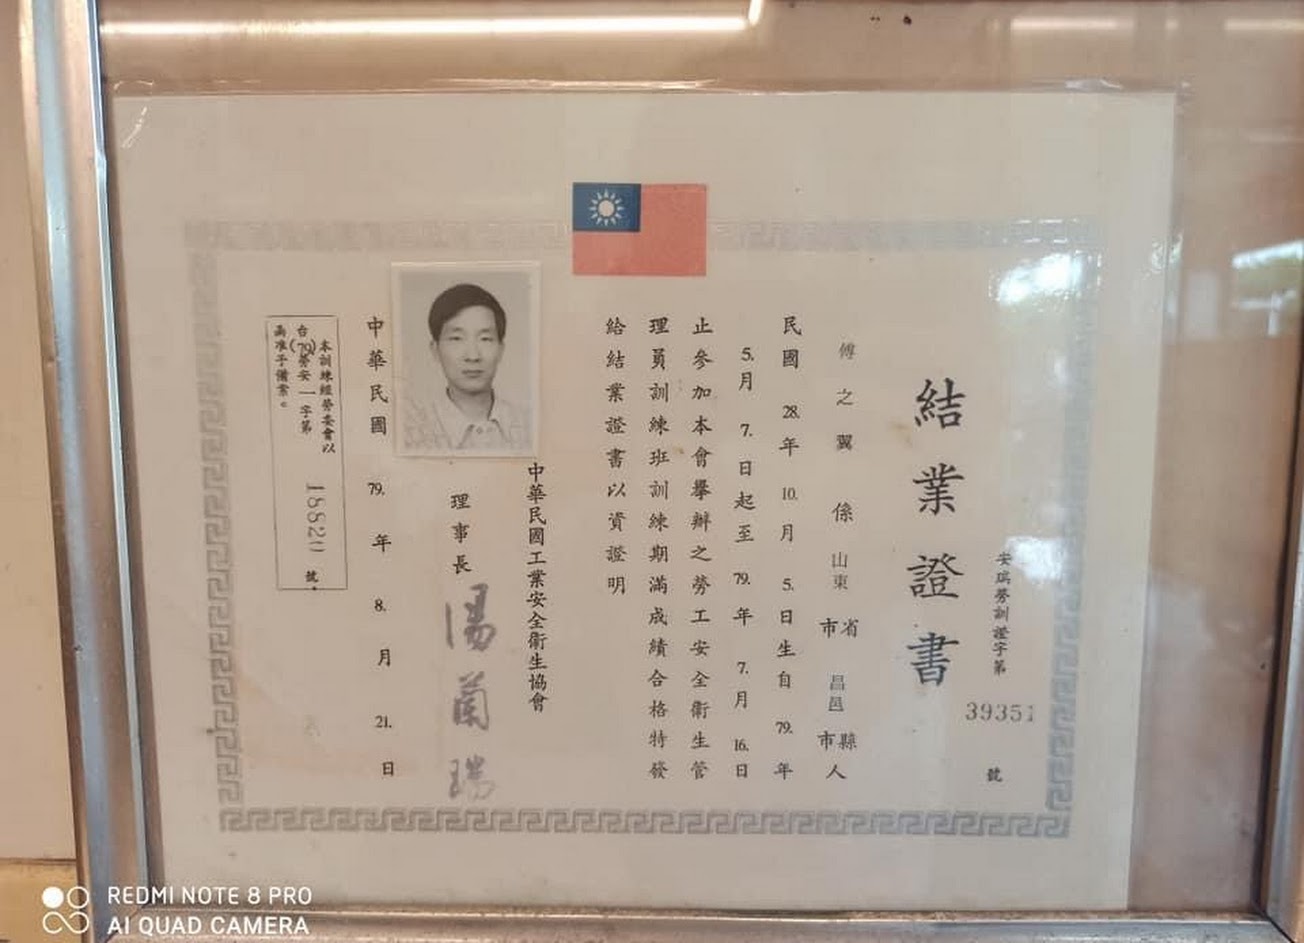 結業證書
安環勞訓證字第 39351 號
傅之翼 係 山東 省市 昌邑 縣市 人
民國 28. 年 10. 月 5. 日生自 79. 年
5. 月 7. 日起至 79. 年 7. 月 16. 日
止參加本會舉辦之勞工安全衛生管
理員訓練班訓練期滿成績合格特發
給結業證書以資證明
中華民國工業安全衛生協會
理事長 湯蘭瑞
中華民國 79. 年 8. 月 21. 日
本訓練經勞委會以
台(79)勞安一字第 18820 號
函准予備案。
REDMI NOTE 8 PRO
AI QUAD CAMERA